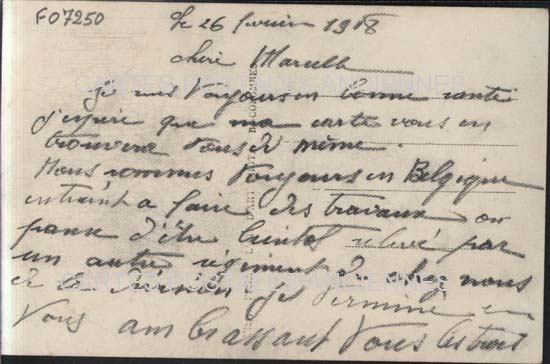 F07250
le 26 fevrier 1918
chère Marcelle
je suis toujours en bonne santé
j'espère que ma carte vous en
trouvera vous de même.
Nous sommes toujours en Belgique
entraint a faire des travaux on
panse d'être bientot relevé par
un autre régiment du
et je termine en
vous ambrassant vous